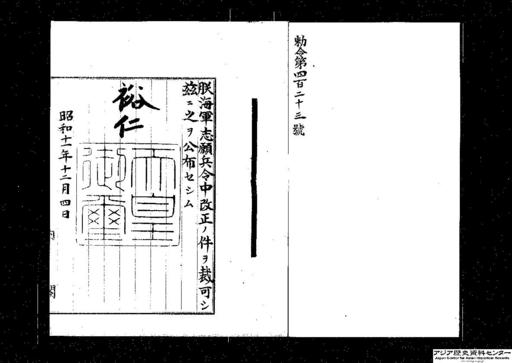 勅令第四百二十三號
朕海軍志願兵令中改正ノ件ヲ裁可シ
茲ニ之ヲ公布セシム
裕仁
天皇
御璽
昭和十一年十二月四日
内閣
アジア歴史資料センター
Japan Center for Asian Historical Records